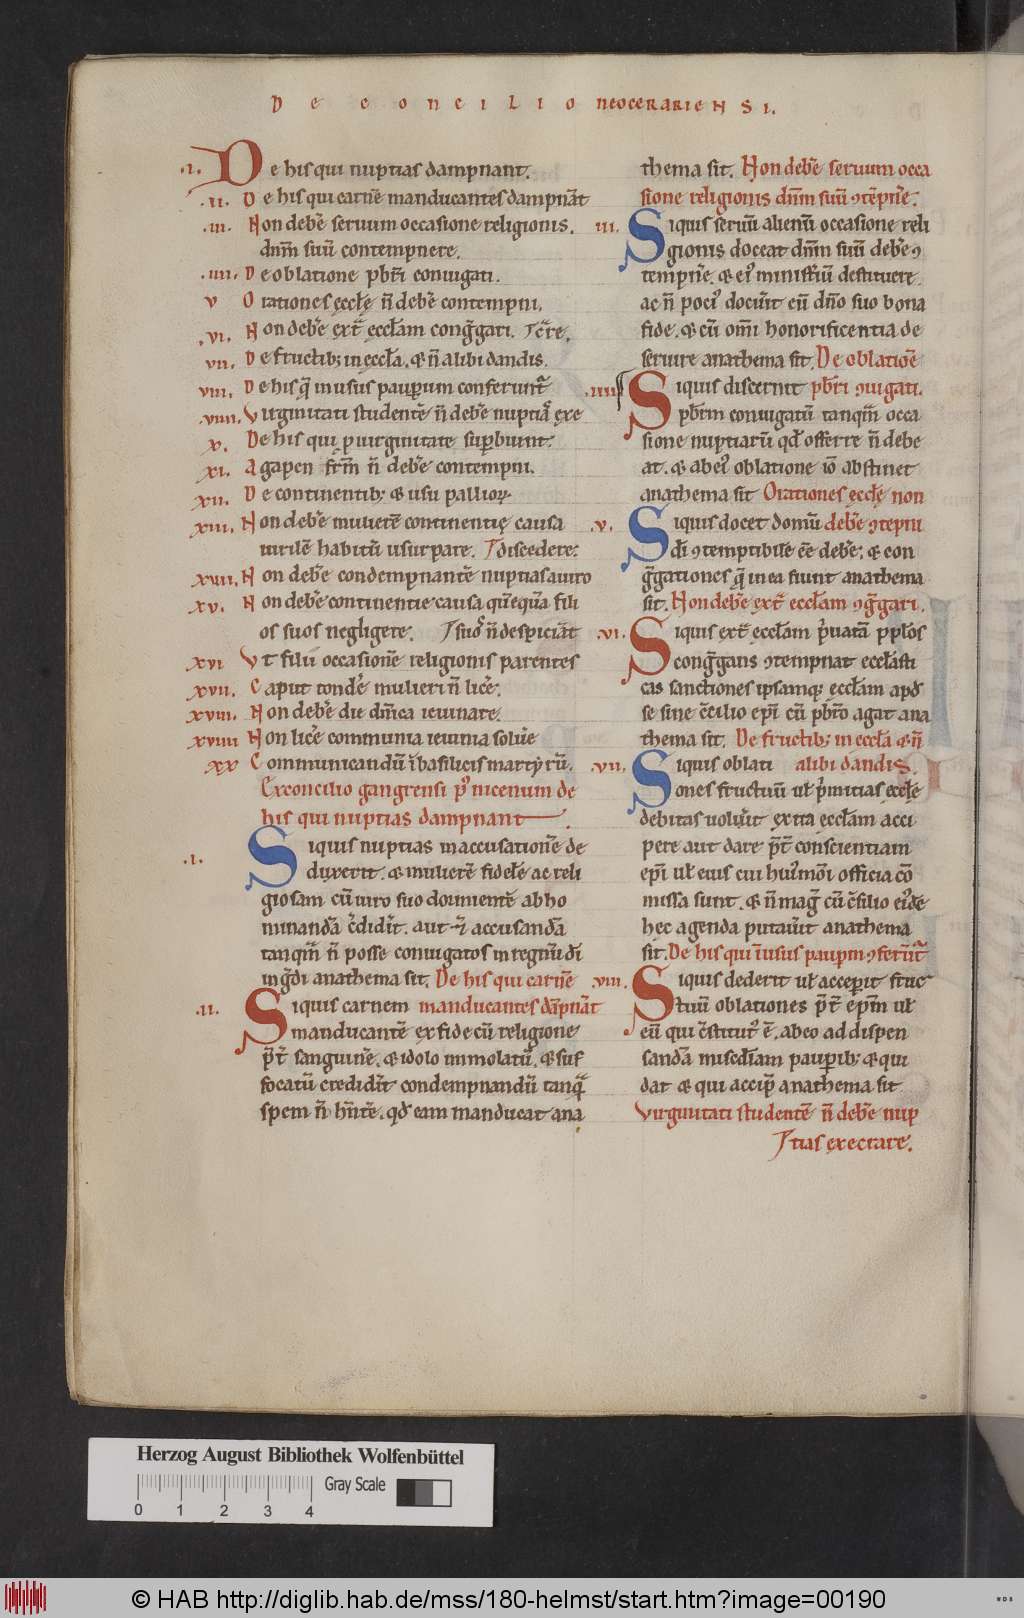 De concilio neocerariensi.
.i. De his qui nuptias dampnant.
.ii. De his qui carnē manducantes dampnāt
.iii. Non debēt seruum occasione religionis.
dnm̄ suū contempnere.
.iiii. De oblatione pb̄ri coniugati.
v Orationes eccl̄ę n̄ debēt contempni.
.vi. Non debēt ext̄ eccl̄am cong̃gari.
vii. De fructib; in eccl̄a. & n̄ alibi dandis.
viii. De his q̄ in usus paup̲um conferunt̃
.viiii. Virginitati studentē n̄ debēt nuptias exe
.x. De his qui p̲ uirginitate sup̲biunt. Ꞇcrāre.
xi. Agapen fr̄m n̄ debēt contempni.
xii. De continentib; & usu pallioꝝ
xiii. Non debēt mulierē continentię causa
uirilē habitū usurpare. Ꞇdiscedere.
xiiii. Non debēt condempnantē nuptias a uiro
xv. Non debēt continentie causa quēquā fili
os suos negligere. Ꞇsuos n̄ despiciāt
xvi Vt filii occasionē religionis parentes
xvii. Caput tondēt mulieri n̄ licēt.
xviii. Non debēt die dn̄ica ieiunare.
xviiii Non licēt communia ieiunia soluēre
xx Communicandū ī basilicis martyrū.
Ex concilio gangrensi p̓ nicenum de
his qui nuptias dampnant.
.i. Siquis nuptias in accusationē de
duxerit. & mulierē fidelē ac reli
giosam cū uiro suo dormientē abho
minandā c̄didit̓. aut & accusandā
tanqm̄ n̄ posse coniugatos in regnū dī
ing̃di anathema sit. De his qui carnē
.ii. Siquis carnem manducantes dāpnāt
manducantē ex fide cū religione
p̄t̓ sanguinē. & idolo immolatū. & suf
focatū credidit̓ condempnandū tanq̄
spem n̄ hn̄tē. qd̓ eam manducat ana
thema sit. Non debēt seruum occa
sione religionis dnm̄ suū ꝯtēpn̄e.
iii. Siquis seruū alienū occasione reli
gionis doceat dnm̄ suū debēre ꝯ
tempn̄e. & ei̓ ministīū destituere
ac n̄ poci̓ docuīt eū dn̄o suo bona
fide. & cū om̄i honorificentia de
seruire anathema sit. De oblatiōe
.iiii Siquis discernit pb̄ri ꝯiugati.
pb̄rm coniugatū tanqm̄ occa
sione nuptiarū qd̓ offerre n̄ debe
at. & ab ei̓ oblatione iō abstinet
anathema sit Orationes eccl̄ę non
.v. Siquis docet domū debēt ꝯtēpni
dī ꝯtemptibilē eē debēre. & con
g̃gationes q̄ in ea fiunt anathema
sit. Non debēt ext̄ eccl̄am ꝯg̃gari.
.vi. Siquis ext̄ eccl̄am p̓uatā pp̄l̄os
congg̃ans ꝯtempnat eccl̄asti
cas sanctiones ipsamq; eccl̄am apd̓
se sine c̄cilio ep̄i cū pb̄ro agat ana
thema sit. De fructib; in eccl̄a & n̄
.vii. Siquis oblati alibi dandis.
ones fructuū ul̓ p̓mitias eccl̄ę
debitas uoluīt extra eccl̄am acci
pere aut dare p̄t̓ conscientiam
ep̄i ul̓ eius cui hui̓modi officia cō
missa sunt. & n̄ mag̃ cū c̄silio ei̓dē
hec agenda putauīt anathema
sit. De his qui ī usus paup̲m ꝯferūt̃
viii. Siquis dederit ul̓ accep̲it fruc
tuū oblationes p̄t̓ ep̄m ul̓
eū qui c̄stitut̓ ē. ab eo ad dispen
sandā misc̄diam paup̲ib; & qui
dat & qui accip̲ anathema sit
Virginitati studentē n̄ debēt nup
Ꞇtias execrare.
Herzog August Bibliothek Wolfenbüttel
0 1 2 3 4 Gray Scale
© HAB http://diglib.hab.de/mss/180-helmst/start.htm?image=00190